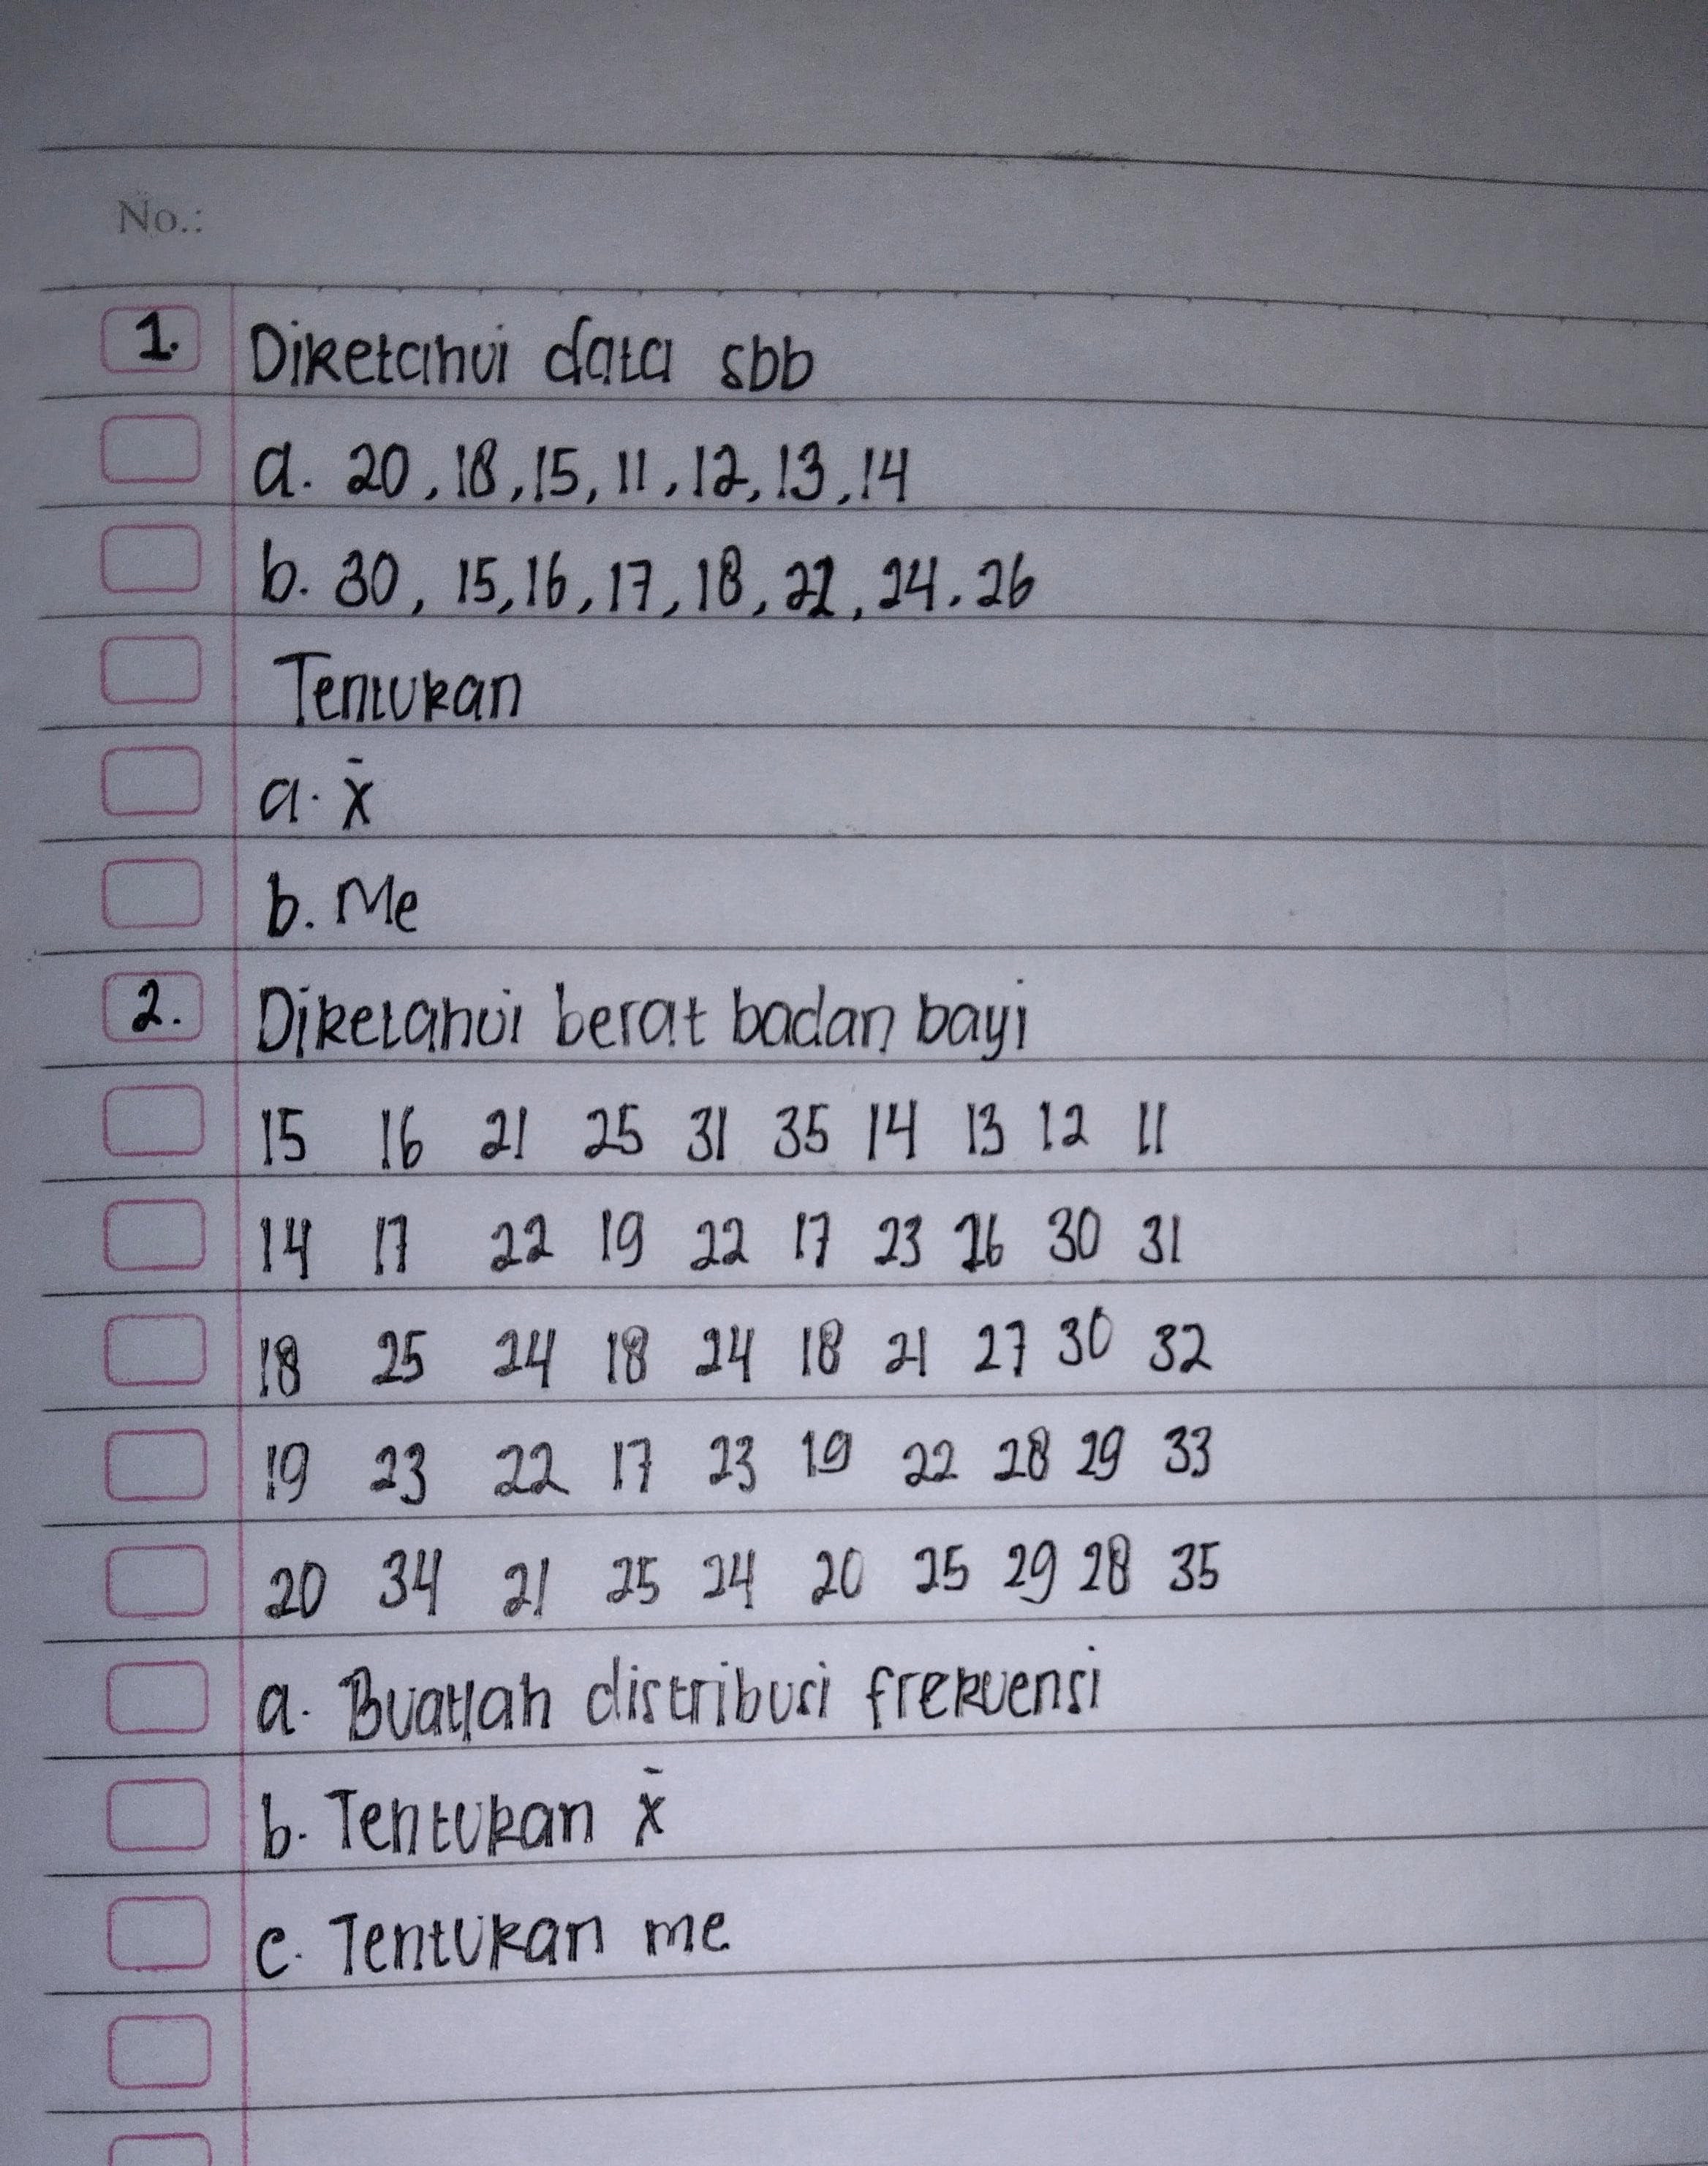 No.:
1. Diketahui data sbb
a. 20, 18, 15, 11, 12, 13, 14
b. 30, 15, 16, 17, 18, 22, 24, 26
Tentukan
a. x̄
b. Me
2. Diketahui berat badan bayi
15 16 21 25 31 35 14 13 12 11
14 17 22 19 22 17 23 26 30 31
18 25 24 18 24 18 21 27 30 32
19 23 22 17 23 19 22 28 29 33
20 34 21 25 24 20 25 29 28 35
a. Buatlah distribusi frekuensi
b. Tentukan x̄
c. Tentukan me